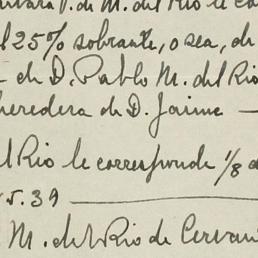 P. de M. del Rio le co
l 25% sobrante, o sea, de
de D. Pablo M. del Rio
heredera de D. Jaime —
l Rio le corresponde 1/8 d
5.39 —
M. del Rio de Cervan